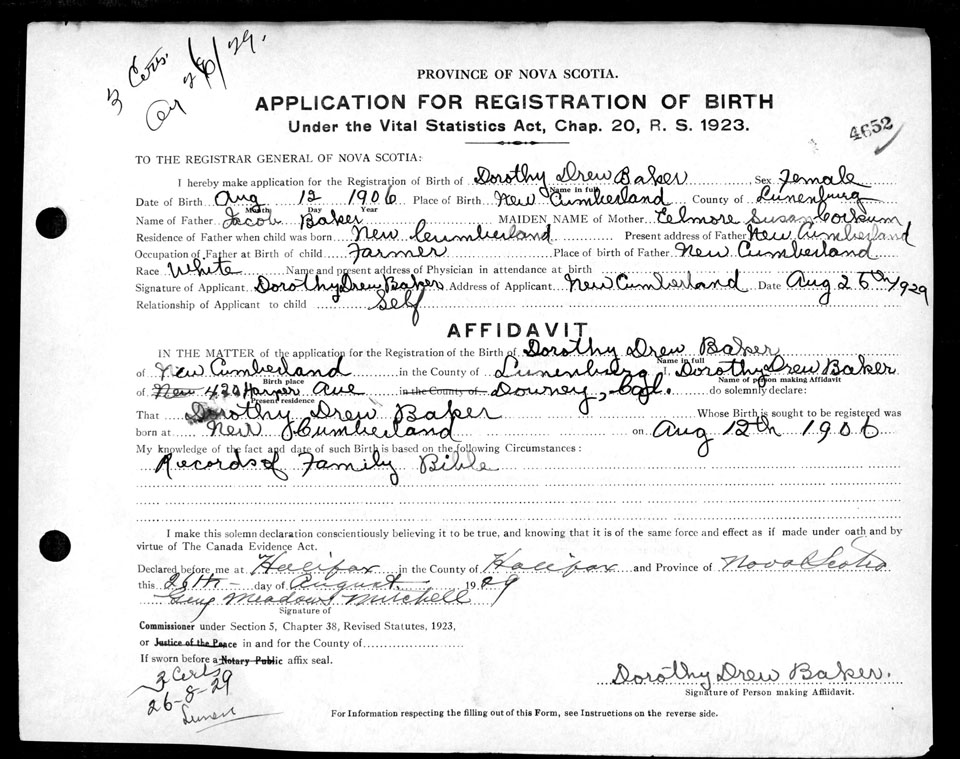 3 Certs.
26/8/29.
PROVINCE OF NOVA SCOTIA.
APPLICATION FOR REGISTRATION OF BIRTH
Under the Vital Statistics Act, Chap. 20, R. S. 1923.
4652
TO THE REGISTRAR GENERAL OF NOVA SCOTIA:
I hereby make application for the Registration of Birth of Dorothy Drew Baker Sex Female
Name in full
Date of Birth Aug 12 1906 Place of Birth New Cumberland County of Lunenburg
Month Day Year
Name of Father Jacob Baker MAIDEN NAME of Mother Elmore Susan Corkum
Residence of Father when child was born New Cumberland Present address of Father New Cumberland
Occupation of Father at Birth of child Farmer Place of birth of Father New Cumberland
Race White Name and present address of Physician in attendance at birth
Signature of Applicant Dorothy Drew Baker Address of Applicant New Cumberland Date Aug 26th/1929
Relationship of Applicant to child Self
AFFIDAVIT
IN THE MATTER of the application for the Registration of the Birth of Dorothy Drew Baker
Name in full
of New Cumberland in the County of Lunenburg I Dorothy Drew Baker
Birth place Name of person making Affidavit
of New 420 Harper Ave in the County of Downey, Cal. do solemnly declare:
Present residence
That Dorothy Drew Baker Whose Birth is sought to be registered was
born at New Cumberland on Aug 12th 1906
My knowledge of the fact and date of such Birth is based on the following Circumstances:
Records of Family Bible
I make this solemn declaration conscientiously believing it to be true, and knowing that it is of the same force and effect as if made under oath and by
virtue of The Canada Evidence Act.
Declared before me at Halifax in the County of Halifax and Province of Nova Scotia
this 26th day of August 1929
Guy Meadows Mitchell
Signature of
Commissioner under Section 5, Chapter 38, Revised Statutes, 1923,
or Justice of the Peace in and for the County of
If sworn before a Notary Public affix seal.
3 Certs
26-8-29
Lunen
Dorothy Drew Baker.
Signature of Person making Affidavit.
For Information respecting the filling out of this Form, see Instructions on the reverse side.